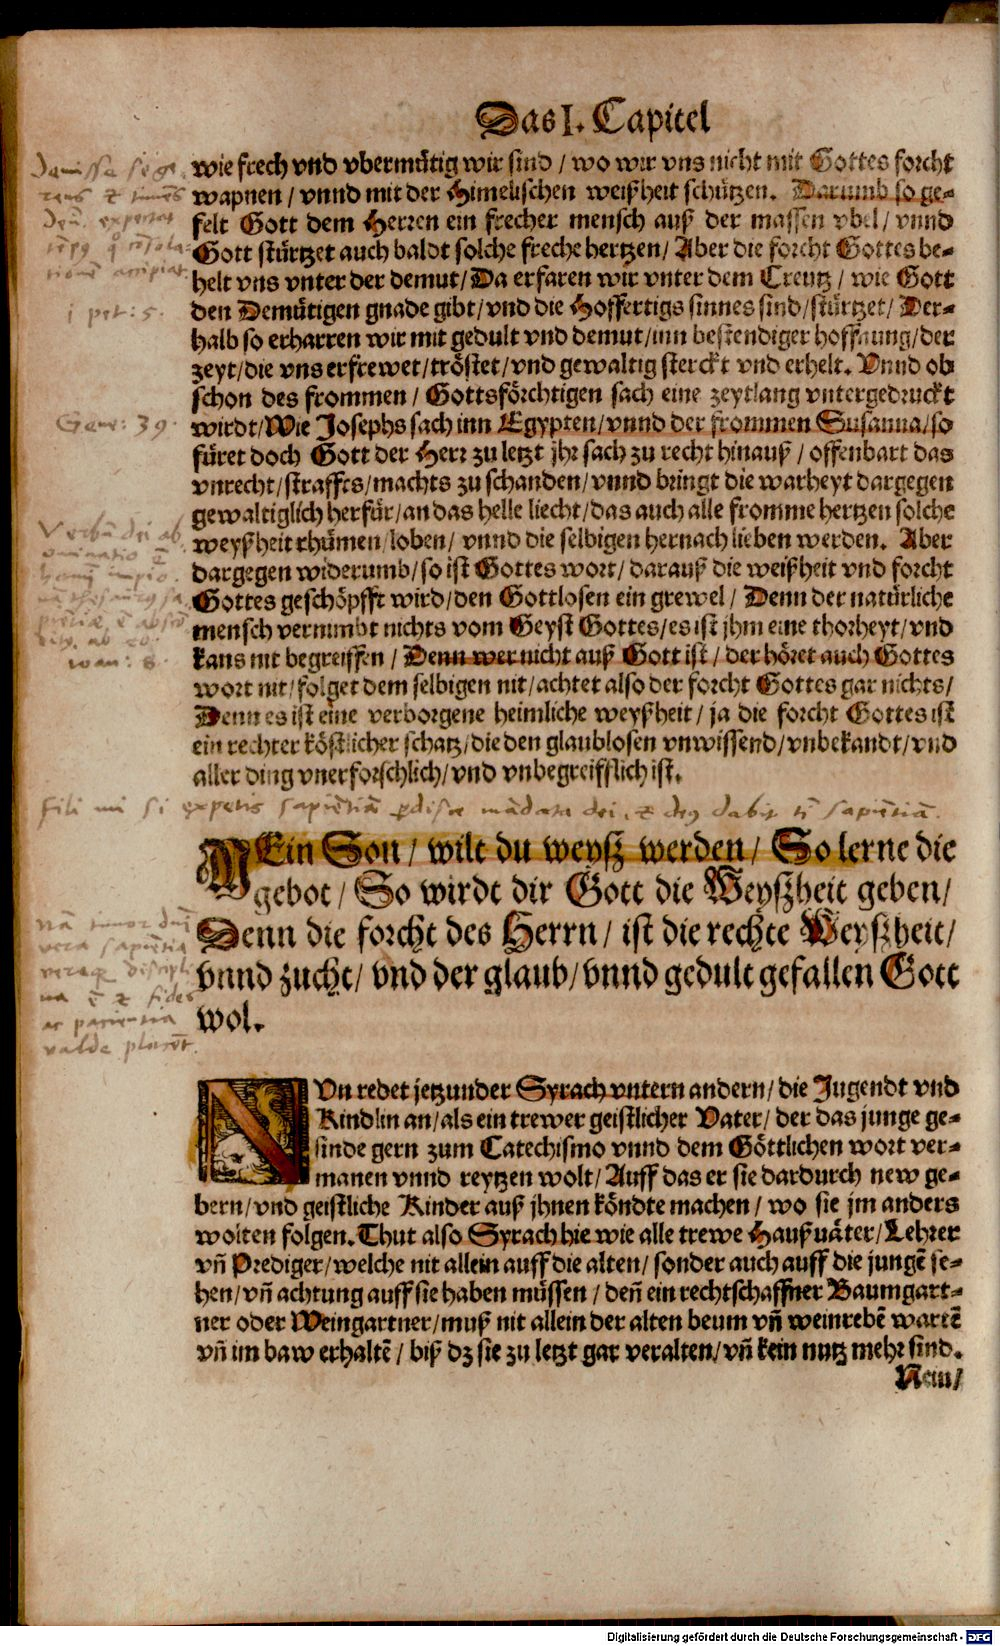 Das I. Capitel
wie frech vnd vbermütig wir sind / wo wir vns nicht mit Gottes forcht
wapnen / vnnd mit der Himelischen weißheit schützen. Darumb so ge-
felt Gott dem Herren ein frecher mensch auß der massen vbel / vnnd
Gott stürtzet auch baldt solche freche hertzen / Aber die forcht Gottes be-
helt vns vnter der demut / Da erfaren wir vnter dem Creutz / wie Gott
den Demütigen gnade gibt / vnd die Hoffertigs sinnes sind / stürtzet / Der-
halb so erharren wir mit gedult vnd demut / inn bestendiger hoffnung / der
zeyt / die vns erfrewet / tröstet / vnd gewaltig sterckt vnd erhelt. Vnnd ob
schon des frommen / Gottsförchtigen sach eine zeytlang vntergedruckt
wirdt / Wie Josephs sach inn Egypten / vnnd der frommen Susanna / so
füret doch Gott der Herr zu letzt jhr sach zu recht hinauß / offenbart das
vnrecht / straffts / machts zu schanden / vnnd bringt die warheyt dargegen
gewaltiglich herfür / an das helle liecht / das auch alle fromme hertzen solche
weyßheit rhümen / loben / vnnd die selbigen hernach lieben werden. Aber
dargegen widerumb / so ist Gottes wort / darauß die weißheit vnd forcht
Gottes geschöpfft wird / den Gottlosen ein grewel / Denn der natürliche
mensch vernimbt nichts vom Geyst Gottes / es ist jhm eine thorheyt / vnd
kans nit begreiffen / Denn wer nicht auß Gott ist / der höret auch Gottes
wort nit / folget dem selbigen nit / achtet also der forcht Gottes gar nichts /
Denn es ist eine verborgene heimliche weyßheit / ja die forcht Gottes ist
ein rechter köstlicher schatz / die den glaublosen vnwissend / vnbekandt / vnd
aller ding vnerforschlich / vnd vnbegreifflich ist.
i pet: 5.
Gene: 39.
fili mi si expetis sapiētiā ꝑdisce mādata dei, et deus dabit tibi sapiētiā.
MEin Son / wilt du weysz werden / So lerne die
gebot / So wirdt dir Gott die Weyszheit geben /
Denn die forcht des Herrn / ist die rechte Weyszheit /
vnnd zucht / vnd der glaub / vnnd gedult gefallen Gott
wol.
vera sapiētia
et fides
ac patientia
valde placēt.
NVn redet jetzunder Syrach vntern andern / die Jugendt vnd
Kindlin an / als ein trewer geistlicher Vater / der das junge ge-
sinde gern zum Catechismo vnnd dem Göttlichen wort ver-
manen vnnd reytzen wolt / Auff das er sie dardurch new ge-
bern / vnd geistliche Kinder auß jhnen köndte machen / wo sie jm anders
wolten folgen. Thut also Syrach hie wie alle trewe Haußuäter / Lehrer
vn̄ Prediger / welche nit allein auff die alten / sonder auch auff die jungē se-
hen / vn̄ achtung auff sie haben müssen / den̄ ein rechtschaffner Baumgart-
ner oder Weingartner / muß nit allein der alten beum vn̄ weinrebē wartē
vn̄ im baw erhaltē / biß dz sie zu letzt gar veralten / vn̄ kein nutz mehr sind.
Nein /
Digitalisierung gefördert durch die Deutsche Forschungsgemeinschaft - DFG